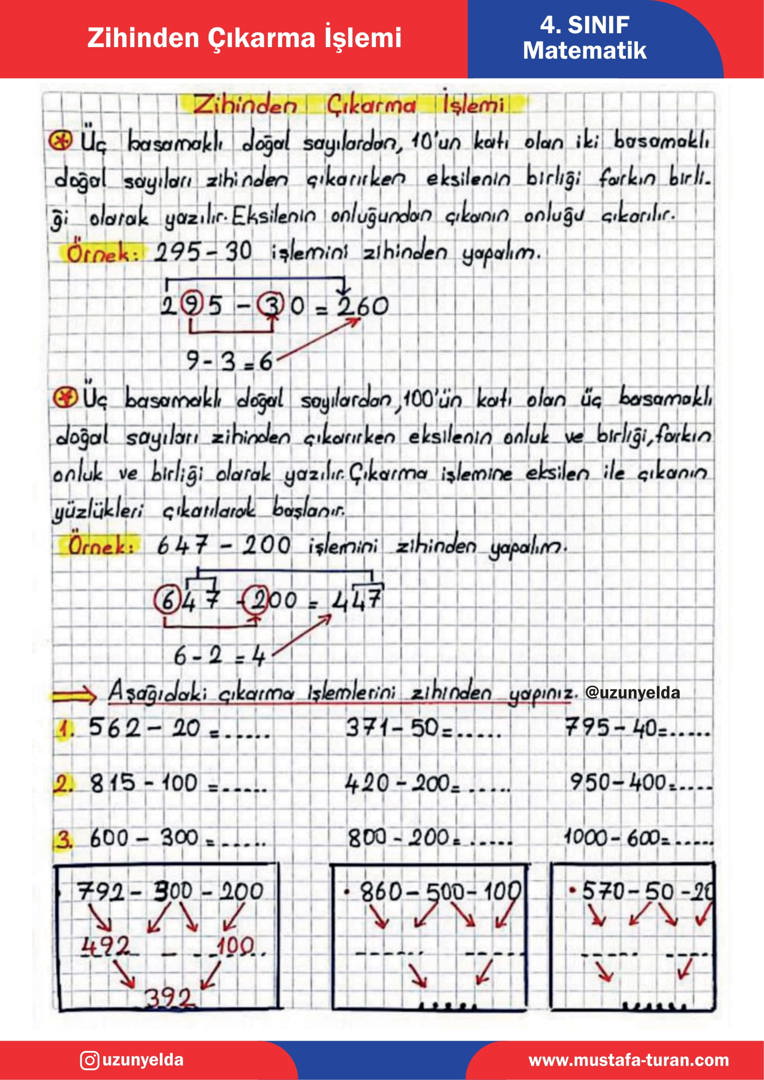 Zihinden Çıkarma İşlemi
4. SINIF
Matematik
Zihinden Çıkarma İşlemi
Üç basamaklı doğal sayılardan, 10'un katı olan iki basamaklı
doğal sayıları zihinden çıkarırken eksilenin birliği farkın birli-
ği olarak yazılır. Eksilenin onluğundan çıkanın onluğu çıkarılır.
Örnek: 295 - 30 işlemini zihinden yapalım.
295 - 30 = 260
9 - 3 = 6
Üç basamaklı doğal sayılardan, 100'ün katı olan üç basamaklı
doğal sayıları zihinden çıkarırken eksilenin onluk ve birliği, farkın
onluk ve birliği olarak yazılır. Çıkarma işlemine eksilen ile çıkanın
yüzlükleri çıkarılarak başlanır.
Örnek: 647 - 200 işlemini zihinden yapalım.
647 - 200 = 447
6 - 2 = 4
Aşağıdaki çıkarma işlemlerini zihinden yapınız. @uzunyelda
1. 562 - 20 = ...... 371 - 50 = ...... 795 - 40 = .....
2. 815 - 100 = ...... 420 - 200 = ...... 950 - 400 = ....
3. 600 - 300 = ...... 800 - 200 = ...... 1000 - 600 = .....
792 - 300 - 200 • 860 - 500 - 100 • 570 - 50 - 20
492 - 100
392
uzunyelda
www.mustafa-turan.com